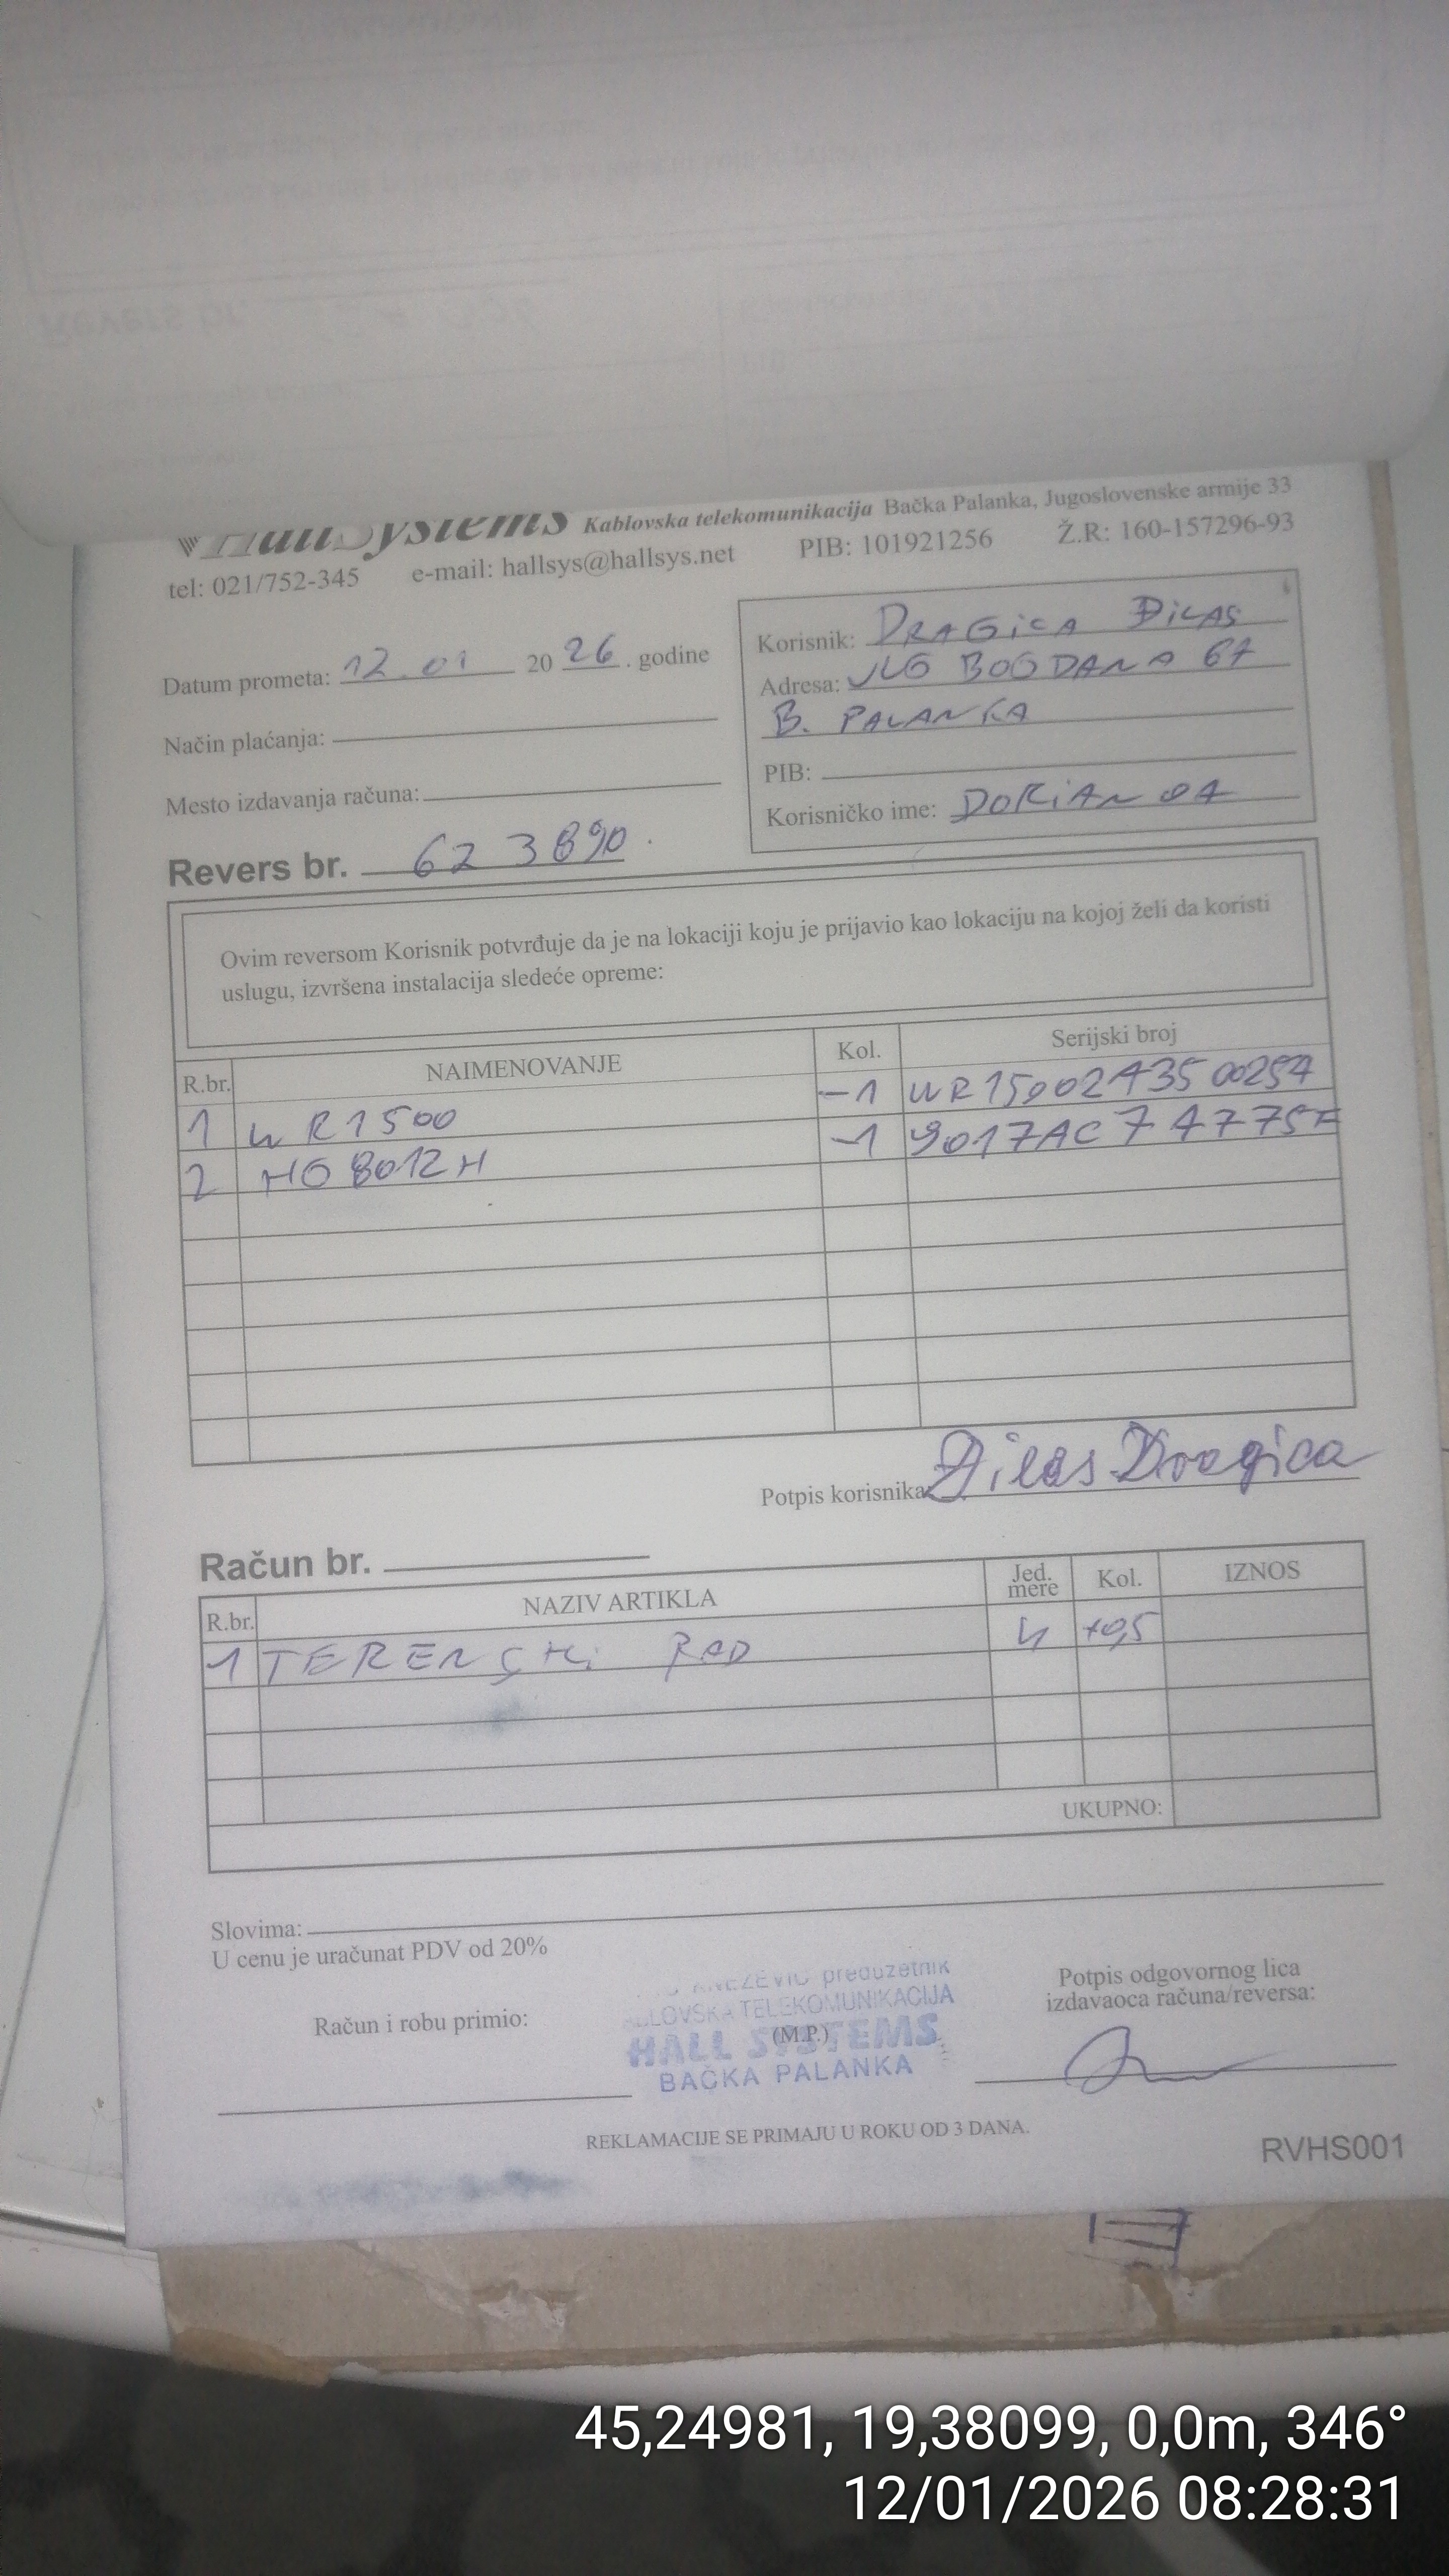 HallSystems Kablovska telekomunikacija Bačka Palanka, Jugoslovenske armije 33
tel: 021/752-345 e-mail: hallsys@hallsys.net PIB: 101921256 Ž.R: 160-157296-93
Datum prometa: 12.01 2026. godine
Način plaćanja:
Mesto izdavanja računa:
Korisnik: DRAGiCA ĐiLAS
Adresa: JUG BOGDANA 67
B. PALANKA
PIB:
Korisničko ime: DORiAN 07
Revers br. 623890.
Ovim reversom Korisnik potvrđuje da je na lokaciji koju je prijavio kao lokaciju na kojoj želi da koristi
uslugu, izvršena instalacija sledeće opreme:
R.br. NAIMENOVANJE Kol. Serijski broj
1 WR1500 -1 WR15002435 00257
2 HG8012H -1 9017AC74775F
Potpis korisnika Đilas Dragica
Račun br.
R.br. NAZIV ARTIKLA Jed. mere Kol. IZNOS
1 TERENSKi RAD h +0,5
UKUPNO:
Slovima:
U cenu je uračunat PDV od 20%
Račun i robu primio:
preduzetnik
TELEKOMUNIKACIJA
(M.P.)
HALL SYSTEMS
BAČKA PALANKA
Potpis odgovornog lica
izdavaoca računa/reversa:
REKLAMACIJE SE PRIMAJU U ROKU OD 3 DANA.
RVHS001
45,24981, 19,38099, 0,0m, 346°
12/01/2026 08:28:31